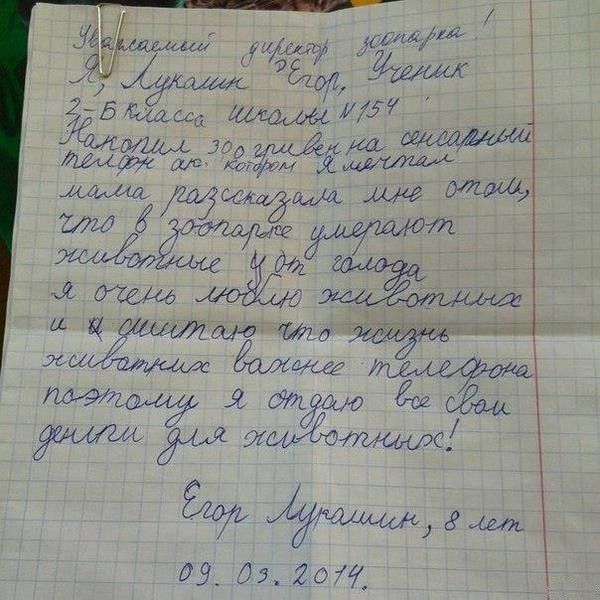 Уважаемый директор зоопарка!
Я, Лукашин Егор, Ученик
2-Б класса школы №154
Накопил 300 гривен на сенсарный
телфон ао котором я мечтал
мама разссказала мне отом,
что в зоопарке умерают
животные от голода
я очень люблю животных
и сшитаю что жизнь
животних важнее телефона
поэтому я отдаю все свои
деньги для животных!
Егор Лукашин, 8 лет
09.03.2014.